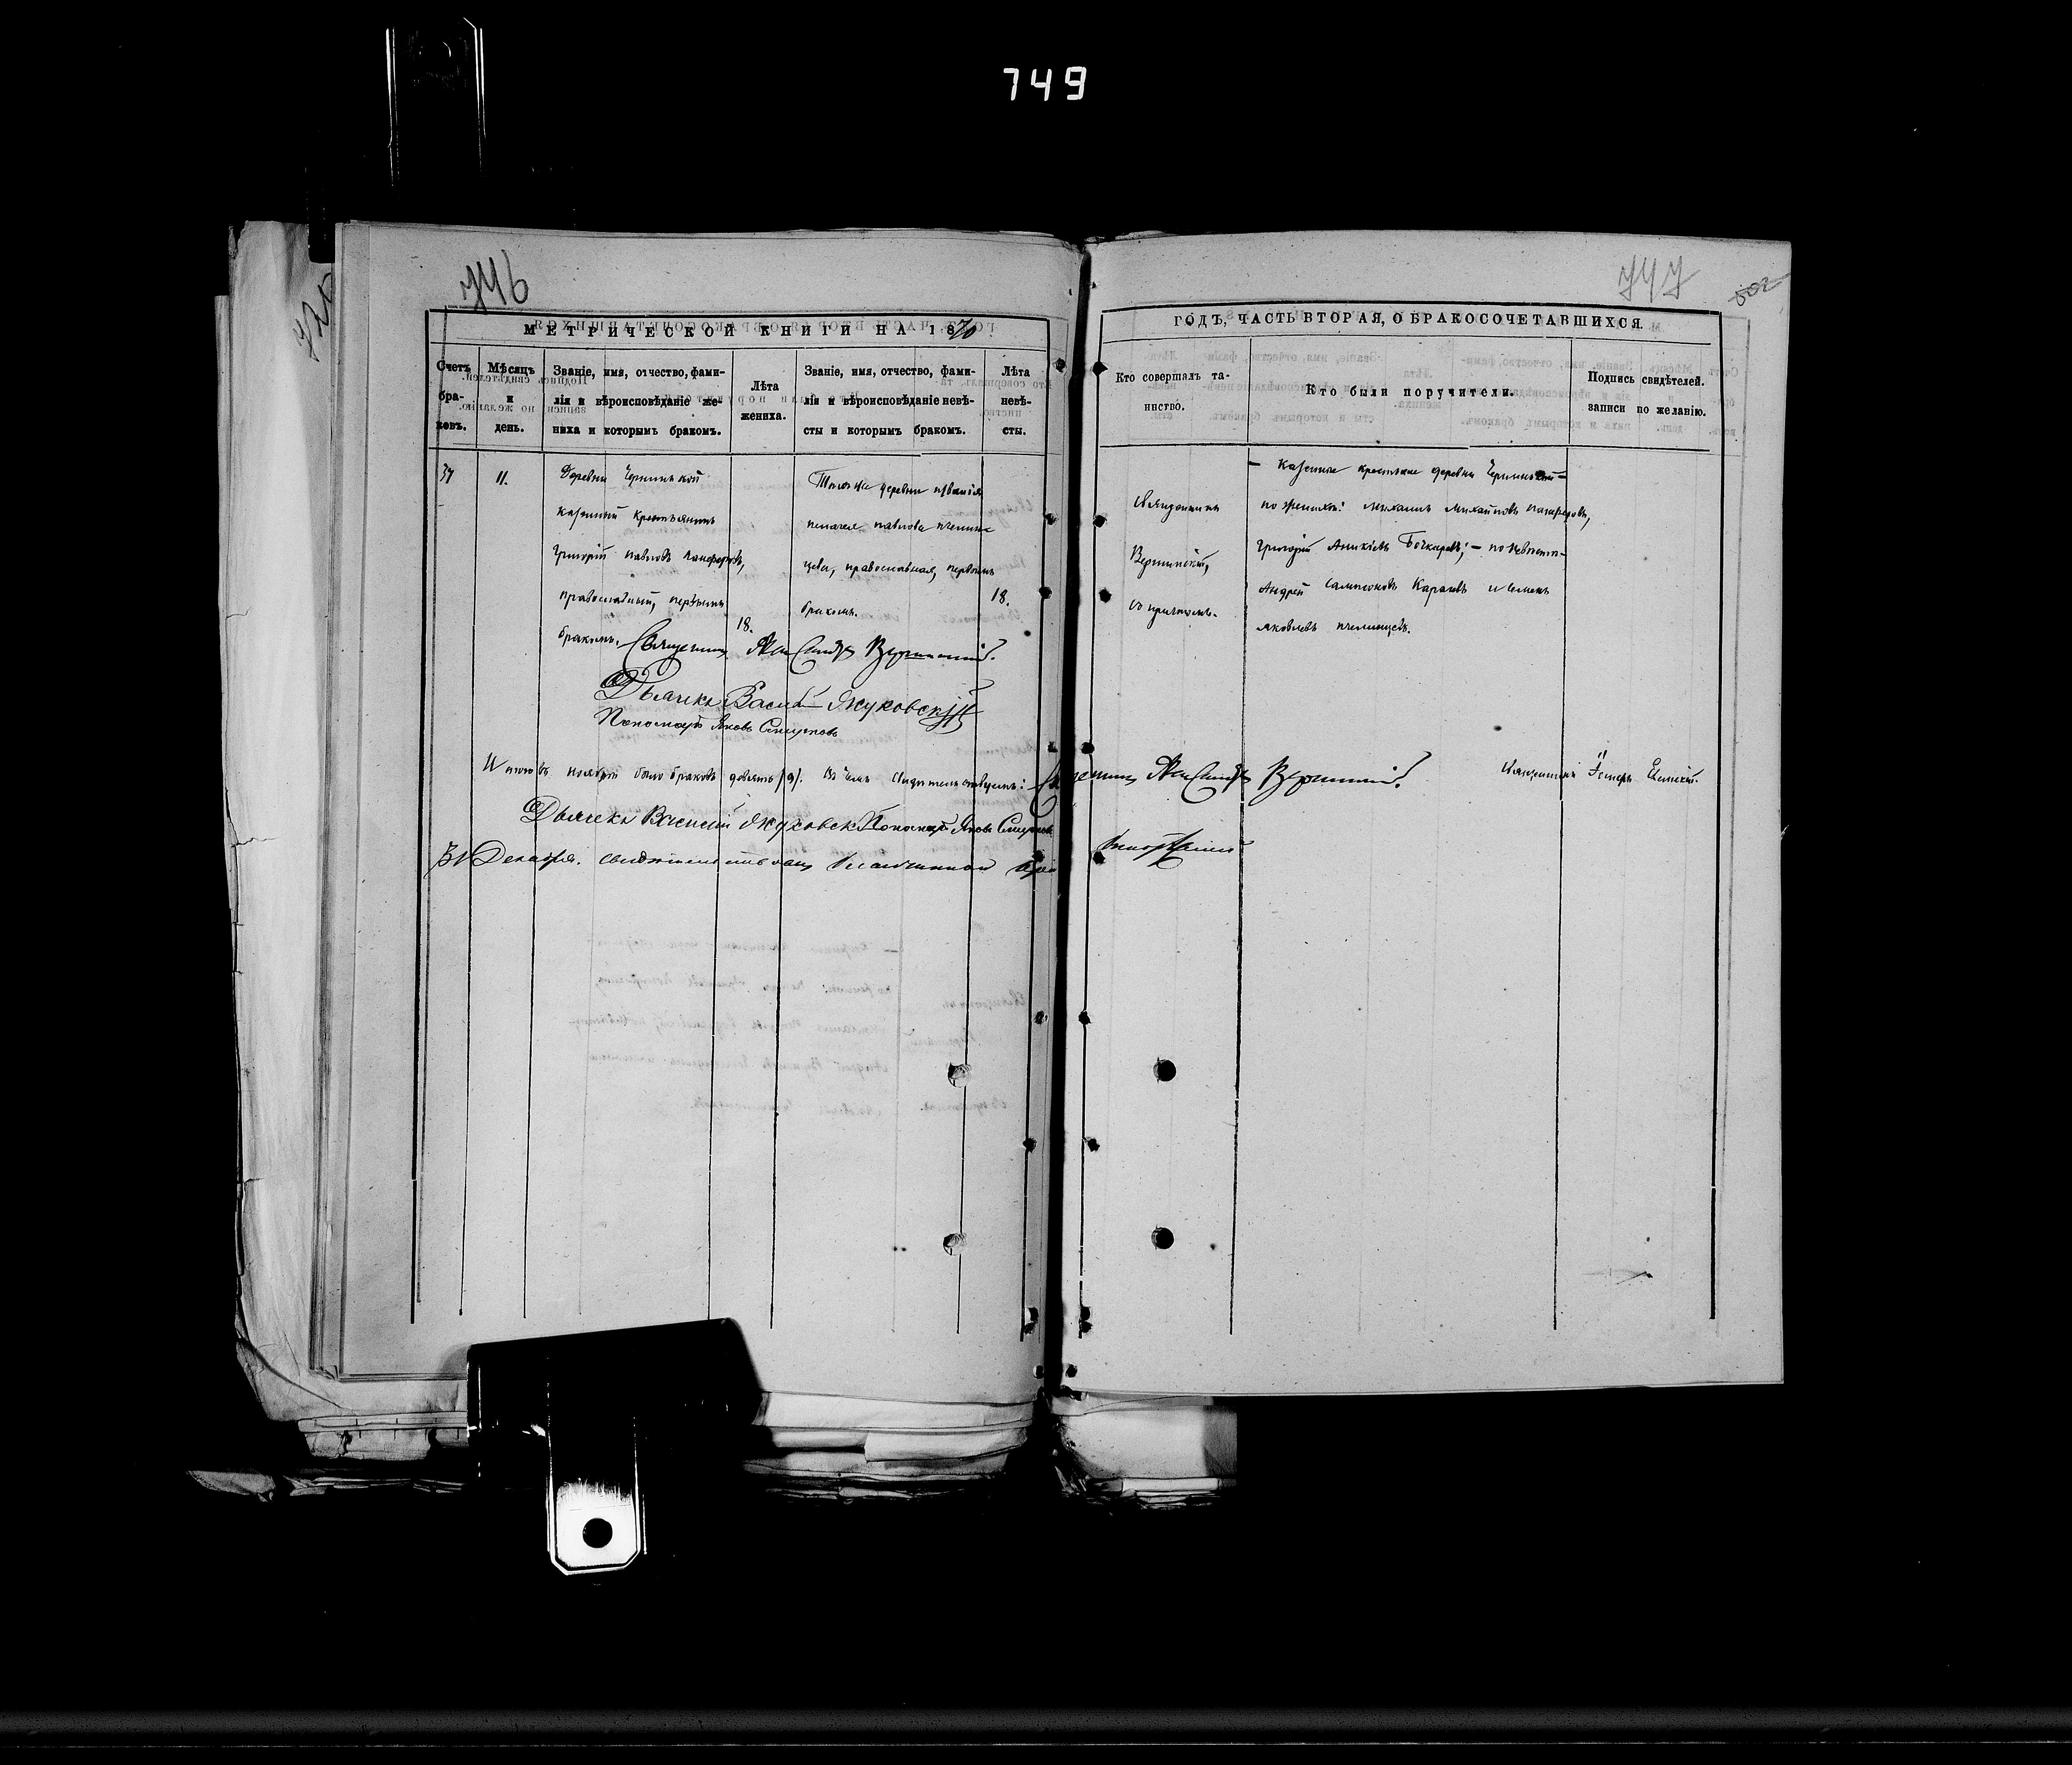 749
746
МЕТРИЧЕСКОЙ КНИГИ НА 1870
Счетъ бра-ковъ.
Мѣсяцъ и день.
Званіе, имя, отчество, фами-
лія и вѣроисповѣданіе же-
ниха и которымъ бракомъ.
Лѣта жениха.
Званіе, имя, отчество, фами-
лія и вѣроисповѣданіе невѣ-
сты и которымъ бракомъ.
Лѣта невѣ-сты.
37
11.
Деревни
казенный крестьянинъ
Григорій Павловъ Панферовъ,
православный, первымъ
бракомъ.
18.
Тояже деревни
Пелагея Павлова Пчелин-
цева, православная, первымъ
бракомъ.
18.
Священникъ Александръ
Дьячекъ Василій Жуковскій
Пономарь Яковъ Смирновъ
Итого въ ноябрѣ было браковъ девять (9). Въ чемъ свидѣтельствуемъ: Священникъ Александръ
Дьячекъ Василій Жуковскій Пономарь Яковъ Смирновъ
31 Декабря. свидѣтельствовалъ Благочинной
747
502
ГОДЪ, ЧАСТЬ ВТОРАЯ, О БРАКОСОЧЕТАВШИХСЯ.
Кто совершалъ та-
инство.
Кто были поручители.
Подпись свидѣтелей.
записи по желанію.
Священникъ
съ причтомъ.
— Казенные крестьяне деревни
по женихѣ: Михаилъ Михайловъ Панферовъ,
Григорій Аникіевъ Бочкаревъ; — по невѣстѣ —
Андрей Сампсоновъ Каратевъ и Семенъ
Яковлевъ Пчелинцевъ.
Священникъ